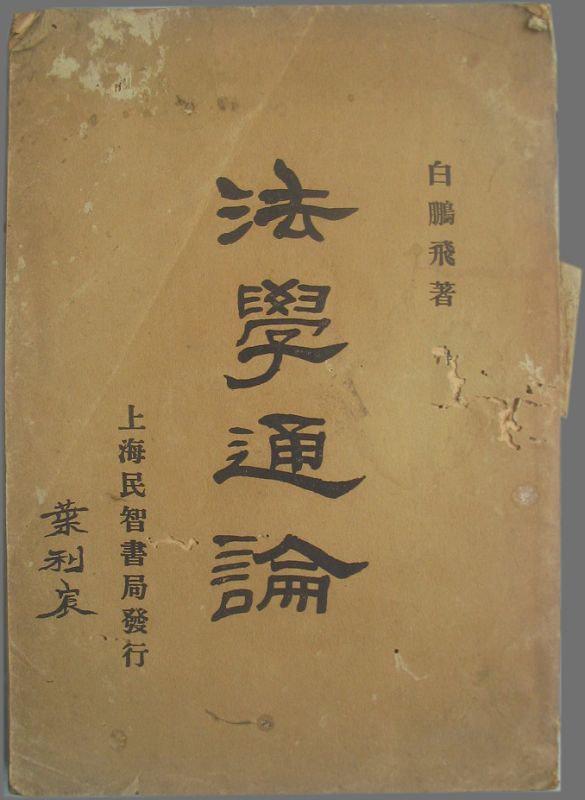 白鵬飛著
法學通論
上海民智書局發行
葉利宸